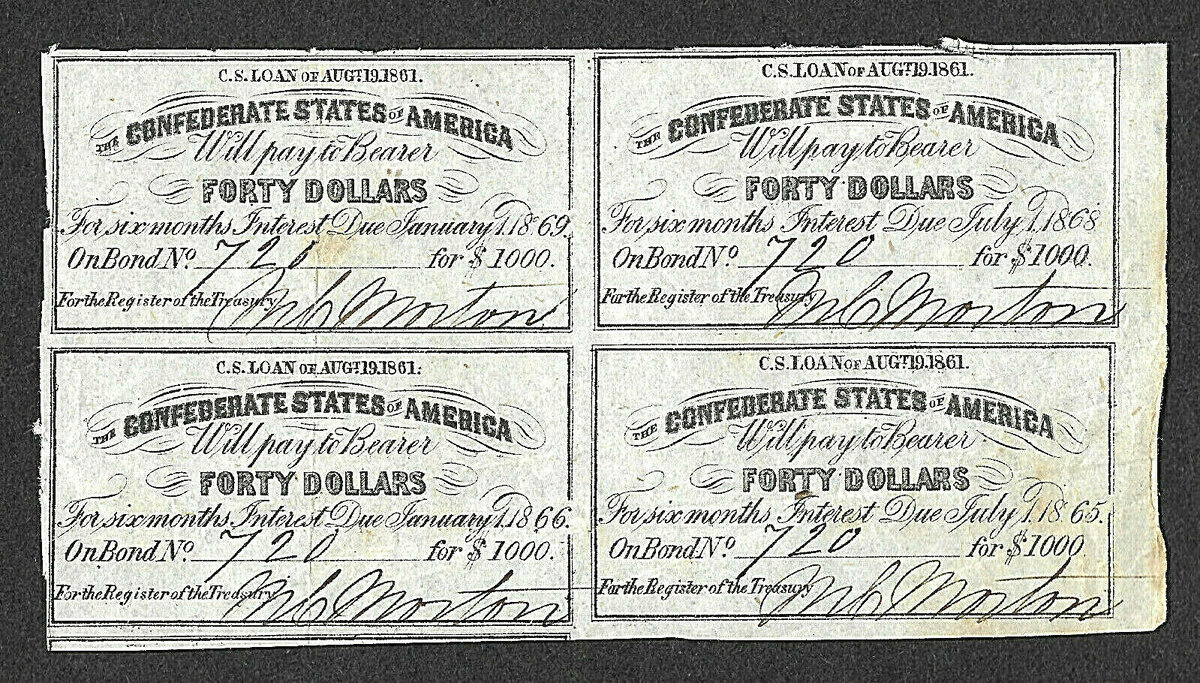 C.S. LOAN OF AUGT. 19. 1861.
THE CONFEDERATE STATES OF AMERICA
Will pay to Bearer
FORTY DOLLARS
For six months Interest Due January 1. 1869.
On Bond No. 720 for $1000.
For the Register of the Treasury M C Morton
C.S. LOAN OF AUGT. 19. 1861.
THE CONFEDERATE STATES OF AMERICA
Will pay to Bearer
FORTY DOLLARS
For six months Interest Due July 1. 1868
On Bond No. 720 for $1000.
For the Register of the Treasury M C Morton
C.S. LOAN OF AUGT. 19. 1861.
THE CONFEDERATE STATES OF AMERICA
Will pay to Bearer
FORTY DOLLARS
For six months Interest Due January 1. 1866.
On Bond No. 720 for $1000.
For the Register of the Treasury M C Morton
C.S. LOAN OF AUGT. 19. 1861.
THE CONFEDERATE STATES OF AMERICA
Will pay to Bearer
FORTY DOLLARS
For six months Interest Due July 1. 1865.
On Bond No. 720 for $1000
For the Register of the Treasury M C Morton